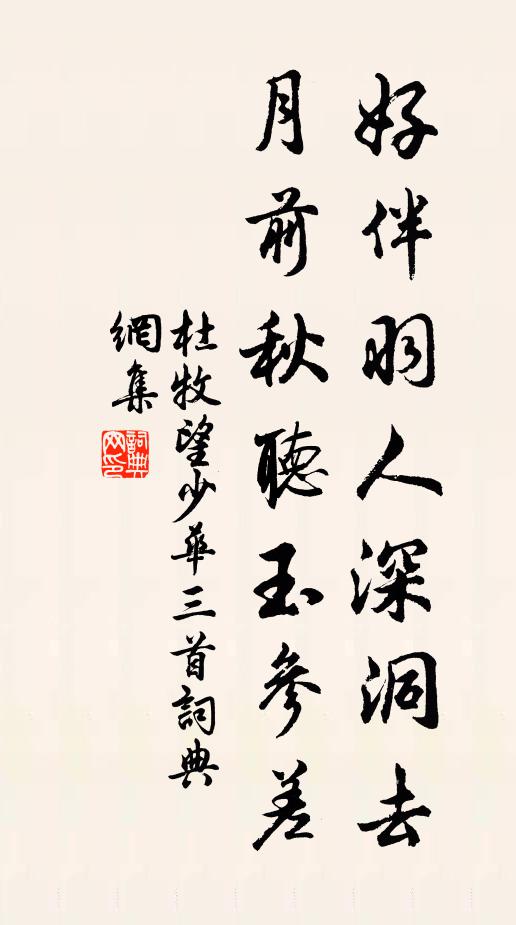 好伴羽人深洞去
月前秋聽玉參差
杜牧望少華三首詞典
網集
詞典網印